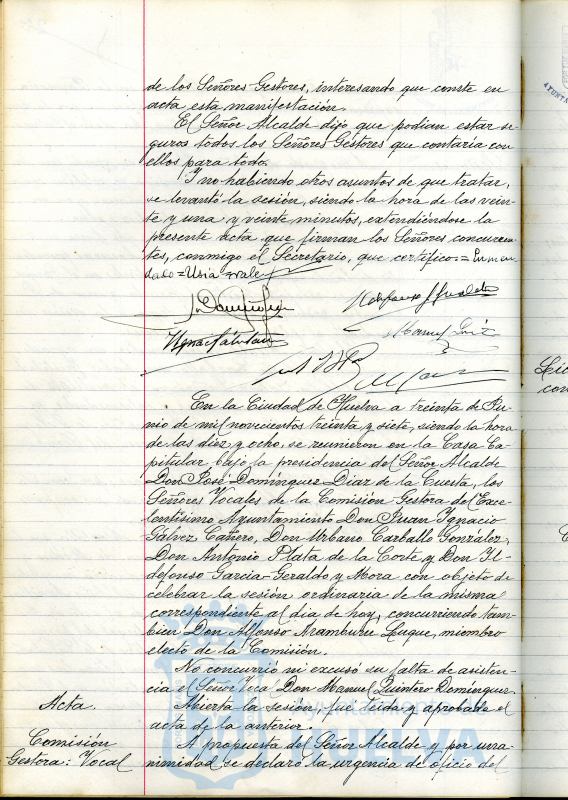 de los Señores Gestores, interesando que conste en
acta esta manifestación.
El Señor Alcalde dijo que podian estar se
guros todos los Señores Gestores que contaria con
ellos para todo.
Y no habiendo otros asuntos de que tratar,
se levantó la sesión, siendo la hora de las vein
te y una y veinte minutos, extendiéndose la
presente acta que firman los Señores concurren
tes, conmigo el Secretario, que certifico.= Enmen
dado=Usia=vale
En la Ciudad de Huelva a treinta de Ju
nio de mil novecientos treinta y siete, siendo la hora
de las diez y ocho, se reunieron en la Casa Ca
pitular bajo la presidencia del Señor Alcalde
Don José Dominguez Diaz de la Cuesta, los
Señores Vocales de la Comisión Gestora del Exce
lentisimo Ayuntamiento Don Juan Ignacio
Gálvez Cañero, Don Urbano Carballo Gonzalez,
Don Antonio Plata de la Corte y Don Il-
defonso Garcia-Geraldo y Mora con objeto de
celebrar la sesión ordinaria de la misma
correspondiente al dia de hoy, concurriendo tam
bien Don Alfonso Aramburu Luque, miembro
electo de la Comisión.
No concurrió ni excusó su falta de asisten
cia el Señor Vocal Don Manuel Quintero Dominguez
Acta.
Abierta la sesión fue leida y aprobada el
acta de la anterior.
Comisión
Gestora: Vocal
A propuesta del Señor Alcalde y por una
nimidad se declaró la urgencia de oficio del